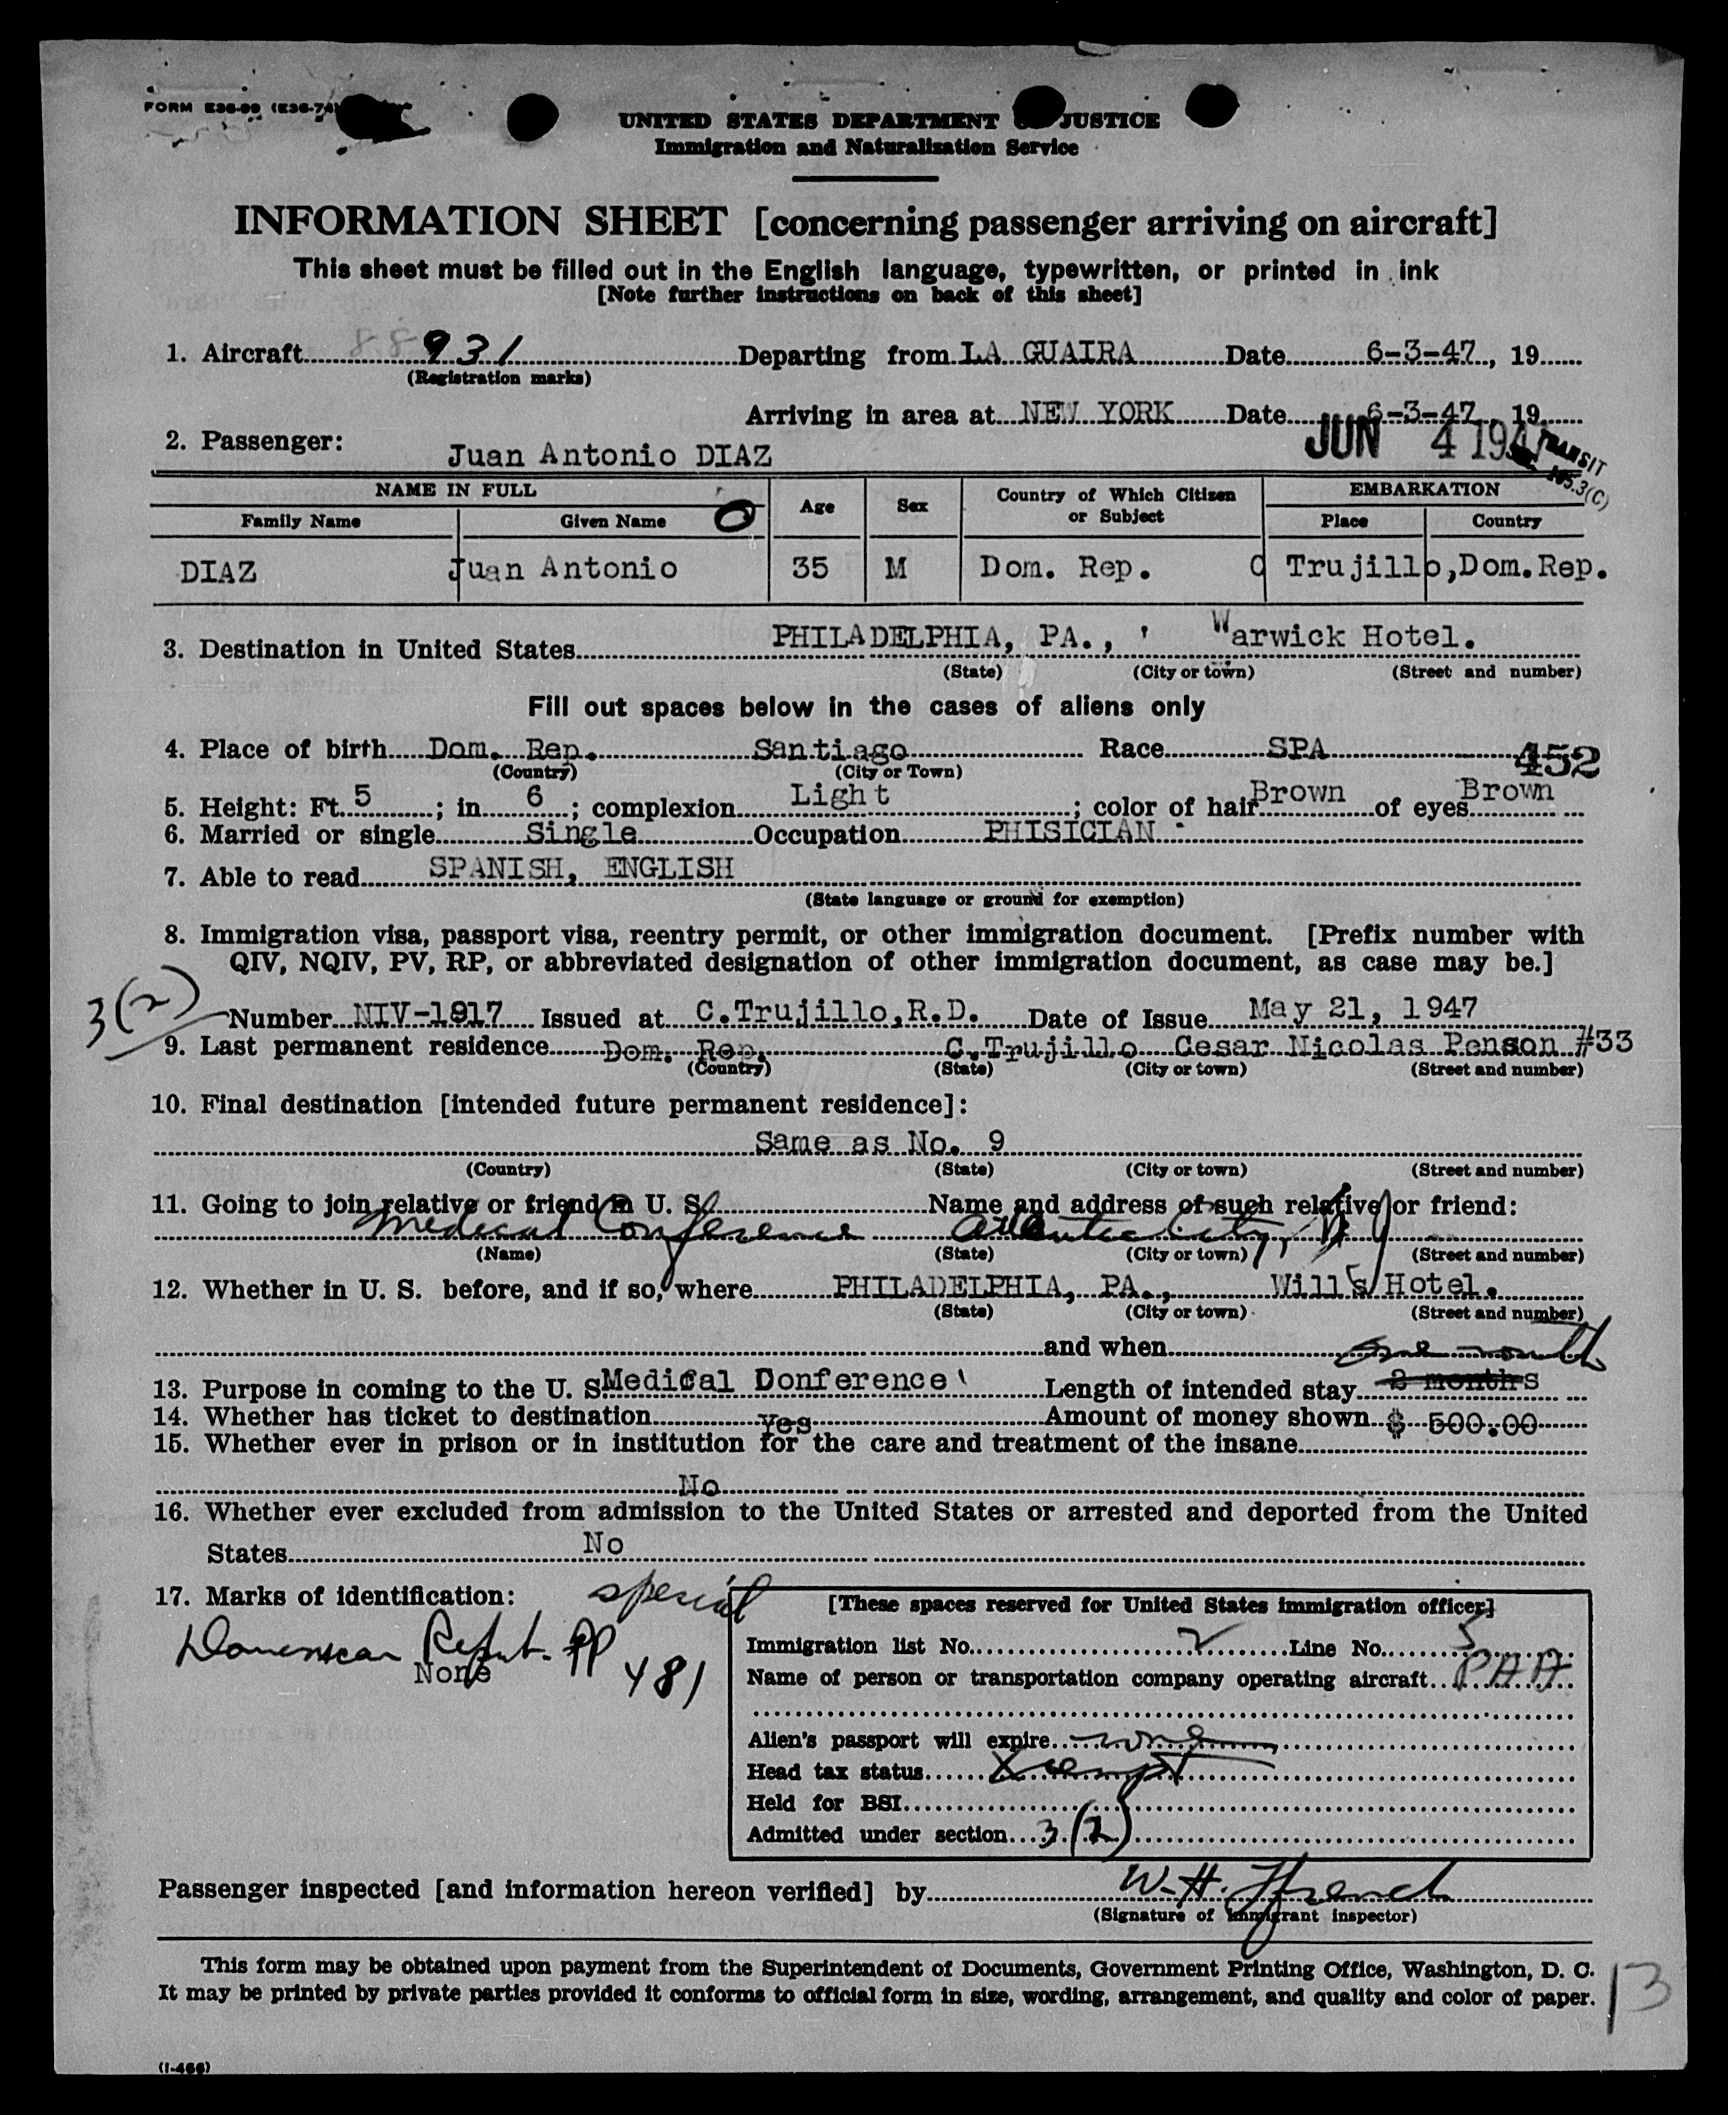 FORM E36-99 (E36-74)
UNITED STATES DEPARTMENT JUSTICE
Immigration and Naturalization Service
INFORMATION SHEET [concerning passenger arriving on aircraft]
This sheet must be filled out in the English language, typewritten, or printed in ink
[Note further instructions on back of this sheet]
1. Aircraft 88931 Departing from LA GUAIRA Date 6-3-47, 19
(Registration marks)
Arriving in area at NEW YORK Date 6-3-47, 19
2. Passenger: Juan Antonio DIAZ JUN 4 1947 TRANSIT
NAME IN FULL Age Sex Country of Which Citizen or Subject EMBARKATION 3(C)
Family Name Given Name O Place Country
DIAZ Juan Antonio 35 M Dom. Rep. C Trujillo, Dom. Rep.
3. Destination in United States PHILADELPHIA, PA., ' Warwick Hotel.
(State) (City or town) (Street and number)
Fill out spaces below in the cases of aliens only
4. Place of birth Dom. Rep. Santiago Race SPA 452
(Country) (City or Town)
5. Height: Ft. 5; in. 6; complexion Light; color of hair Brown of eyes Brown
6. Married or single Single Occupation PHISICIAN
7. Able to read SPANISH, ENGLISH
(State language or ground for exemption)
8. Immigration visa, passport visa, reentry permit, or other immigration document. [Prefix number with
QIV, NQIV, PV, RP, or abbreviated designation of other immigration document, as case may be.]
3(2) Number NIV-1817 Issued at C.Trujillo,R.D. Date of Issue May 21, 1947
9. Last permanent residence Dom. Rep. C.Trujillo Cesar Nicolas Penson #33
(Country) (State) (City or town) (Street and number)
10. Final destination [intended future permanent residence]:
Same as No. 9
(Country) (State) (City or town) (Street and number)
11. Going to join relative or friend in U. S. Name and address of such relative or friend:
Medical Conference Atlantic City, NJ
(Name) (State) (City or town) (Street and number)
12. Whether in U. S. before, and if so, where PHILADELPHIA, PA., Will's Hotel.
(State) (City or town) (Street and number)
and when one month
13. Purpose in coming to the U. S. Medical Donference Length of intended stay 2 months
14. Whether has ticket to destination Yes Amount of money shown $ 500.00
15. Whether ever in prison or in institution for the care and treatment of the insane
No
16. Whether ever excluded from admission to the United States or arrested and deported from the United
States No
17. Marks of identification: special
Dominican Repub. PP 481
None
[These spaces reserved for United States immigration officer]
Immigration list No. 2 Line No. 5
Name of person or transportation company operating aircraft PAA
Alien's passport will expire none
Head tax status Xempt
Held for BSI
Admitted under section 3(2)
Passenger inspected [and information hereon verified] by W. H. Ffrench
(Signature of immigrant inspector)
This form may be obtained upon payment from the Superintendent of Documents, Government Printing Office, Washington, D. C.
It may be printed by private parties provided it conforms to official form in size, wording, arrangement, and quality and color of paper.
13
(I-466)